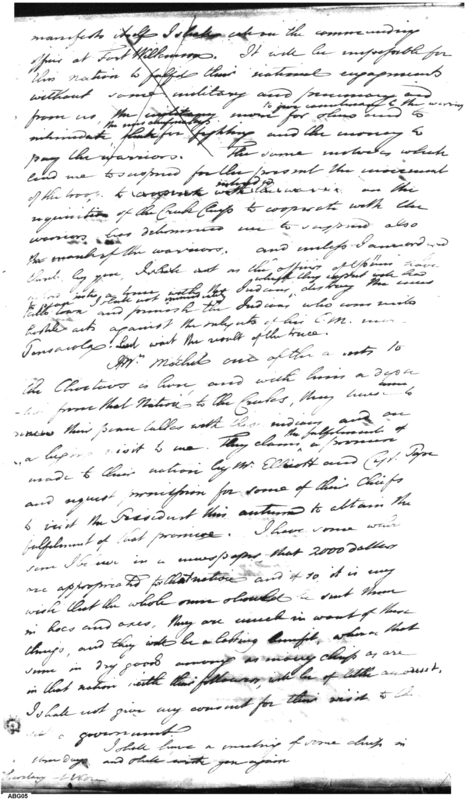 manifests itself I shall call on the commanding
officer at Fort Wilkinson. It will be impossible for
this nation to fulfil their national engagements
without some military and pecuniary aid
from us, the military more for shew and to
to give countenance to the warriors
intimidate than for fighting and the money to
pay the warriors. The same motives which
led me to suspend for the present the movement
of the troops to cooperate with the warriors on the
requisition of the Creek Chiefs to cooperate with the
warriors has determined me to suspend also
the march of the warriors. and unless I am ordered
by you, I shall not as the officers of Spain have
into a truce with the Indians, which they expect will
town and punish the Indians who commits
hostile acts against the subjects of his C.M. in
Pensacola but wait the result of the truce.
Mr. Mitchel one of the agents to
the Choctaws is here and with him a
from that Nation to the Creeks, they
their peace talks with these indians and on
a visit to me. They claim the fulfilment of a promise
made to their nation by Mr. Ellicott and Capt.
and request permission for some of their Chiefs
to visit the President this autumn to obtain the
fulfilment of that promise. I have some where
seen in a newspaper that 2000 dollars
are appropriated to that nation and if so it is my
wish that the whole sum should be sent them
in hoes and axes, they are much in want of these
things, and they will be a lasting benefit, when that
sum in dry goods among as many chiefs as are
in that nation with their followers, will be of little
I shall not give my consent for this visit to the
government
I shall have a meeting of some chiefs in
days and shall write you again
Secretary of War
ABG05